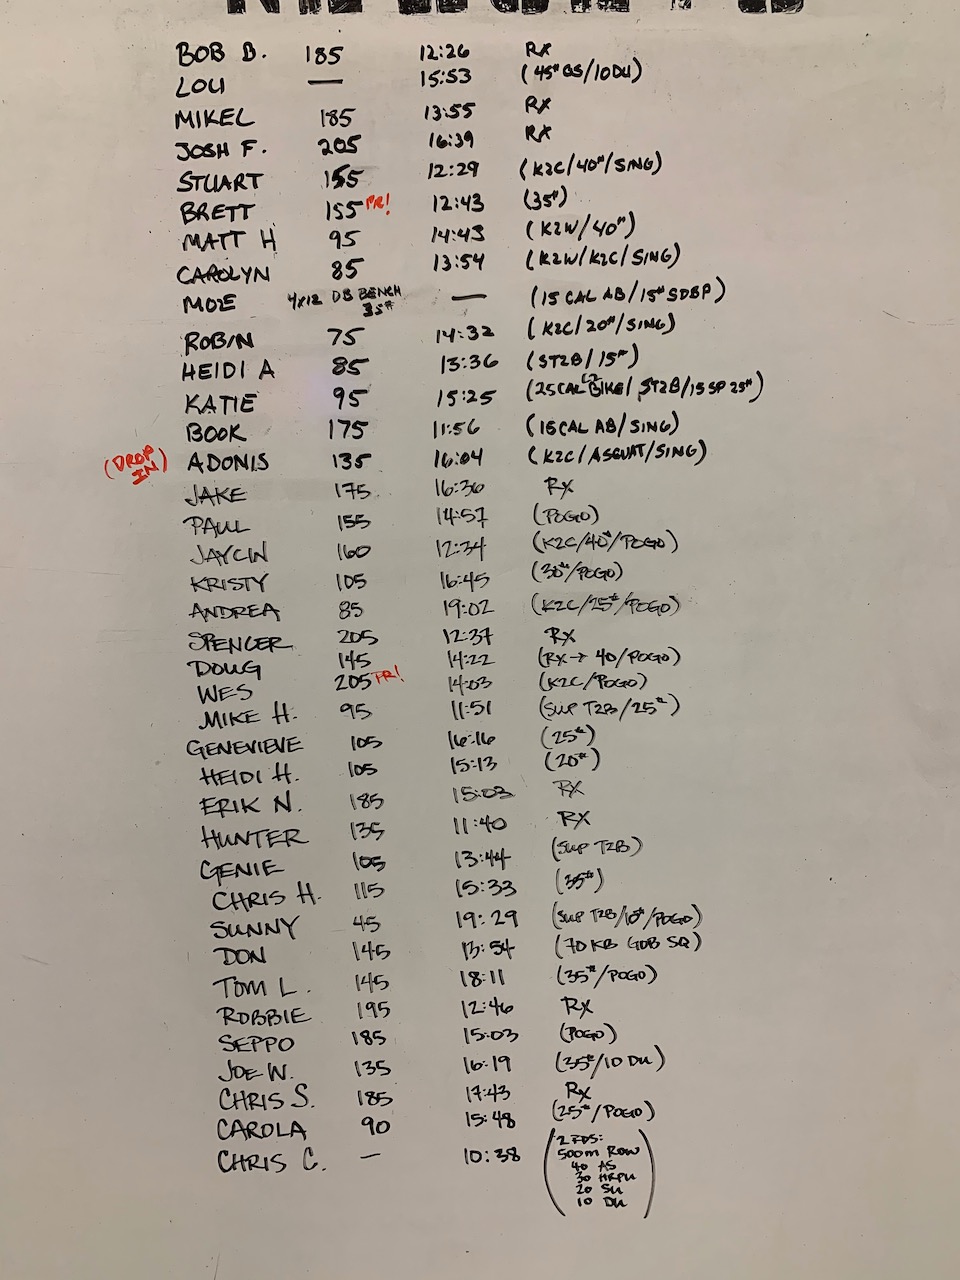 BOB B. 185 12:26 RX
LOU — 15:53 (45# GS/10DU)
MIKEL 185 13:55 RX
JOSH F. 205 16:39 RX
STUART 155 12:29 (K2C/40#/SING)
BRETT 155 PR! 12:43 (35#)
MATT H 95 14:43 (K2W/40#)
CAROLYN 85 13:54 (K2W/K2C/SING)
MOE 4x12 DB BENCH 35# — (15 CAL AB/15# SDBP)
ROBIN 75 14:32 (K2C/20#/SING)
HEIDI A 85 13:36 (ST2B/15#)
KATIE 95 15:25 (25CAL BIKE/ST2B/15 SP 25#)
BOOK 175 11:56 (15 CAL AB/SING)
(DROP IN) ADONIS 135 16:04 (K2C/ASQUAT/SING)
JAKE 175 16:36 RX
PAUL 155 14:57 (POGO)
JAYCIN 160 12:34 (K2C/40#/POGO)
KRISTY 105 16:45 (30#/POGO)
ANDREA 85 19:02 (K2C/25#/POGO)
SPENCER 205 12:37 RX
DOUG 145 14:22 (RX→40/POGO)
WES 205 PR! 14:03 (K2C/POGO)
MIKE H. 95 11:51 (SUP T2B/25#)
GENEVIEVE 105 16:16 (25#)
HEIDI H. 105 15:13 (20#)
ERIK N. 185 15:03 RX
HUNTER 135 11:40 RX
GENIE 105 13:44 (SUP T2B)
CHRIS H. 115 15:33 (35#)
SUNNY 45 19:29 (SUP T2B/10#/POGO)
DON 145 13:54 (70 KB GOB SQ)
TOM L. 145 18:11 (35#/POGO)
ROBBIE 195 12:46 RX
SEPPO 185 15:03 (POGO)
JOE W. 135 16:19 (35#/10 DU)
CHRIS S. 185 17:43 RX
CAROLA 90 15:48 (25#/POGO)
CHRIS C. — 10:38 (2 RDS:
500m ROW
40 AS
30 HRPU
20 SU
10 DU)